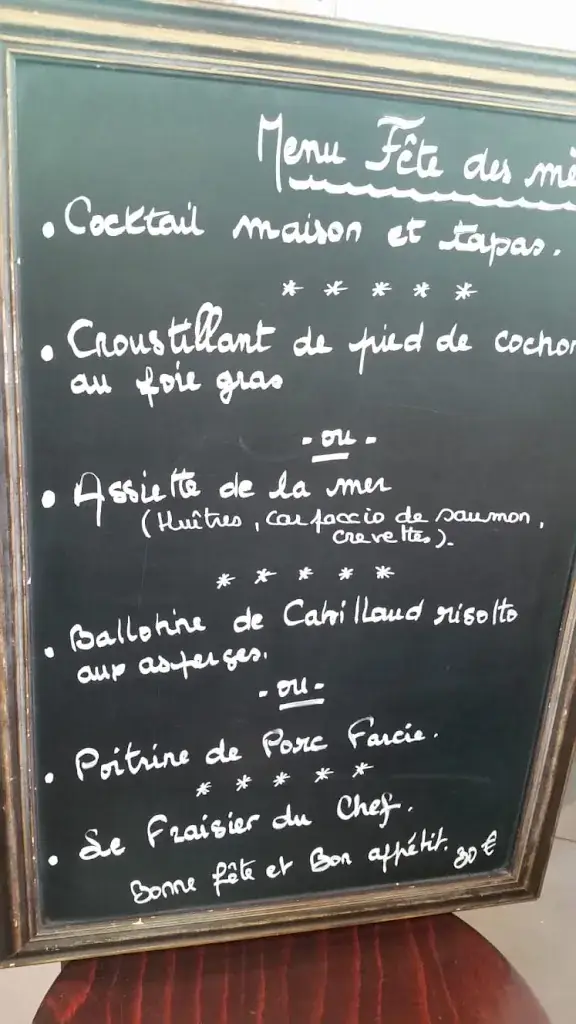 Menu Fête des mè
• Cocktail maison et tapas.
* * * * *
• Croustillant de pied de cochon
au foie gras
- ou -
• Assiette de la mer
(Huîtres, Carpaccio de saumon,
crevettes).
* * * * *
• Ballotine de Cabillaud risotto
aux asperges.
- ou -
• Poitrine de Porc Farcie.
* * * * *
• Le Fraisier du Chef.
Bonne fête et Bon appétit. 30 €